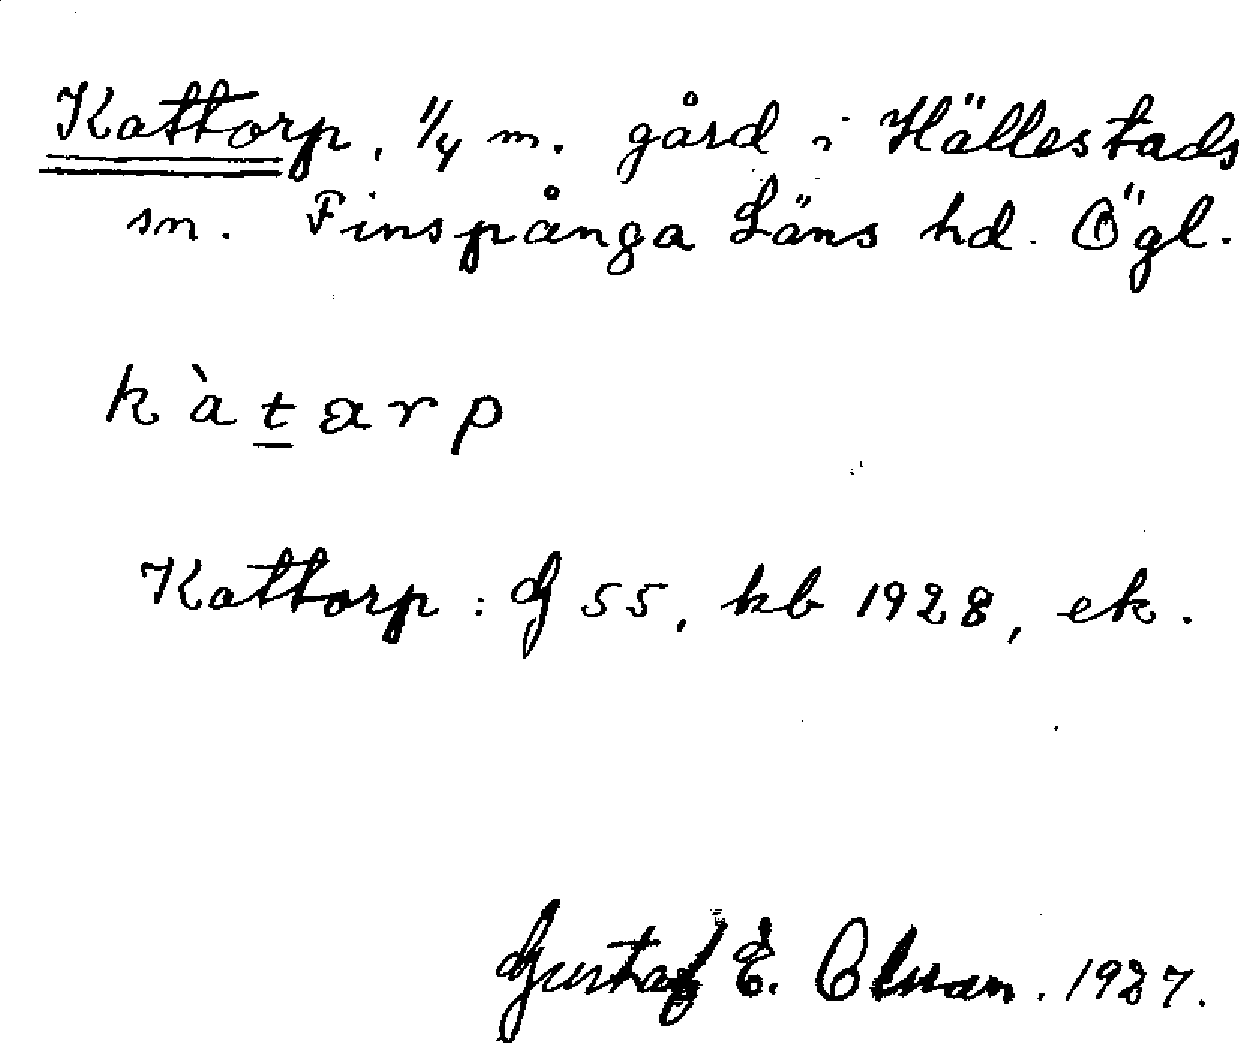 Kattorp, 1/4 m. gård i Hällestads
sn. Finspånga Läns hd. Ögl.
kàtarp
Kattorp: G 55, kb 1928, ek.
Gustaf E. Olsson. 1927.